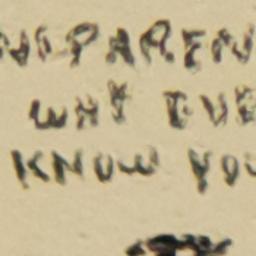 NSPAREN
WHY EVE
KNOW YOU